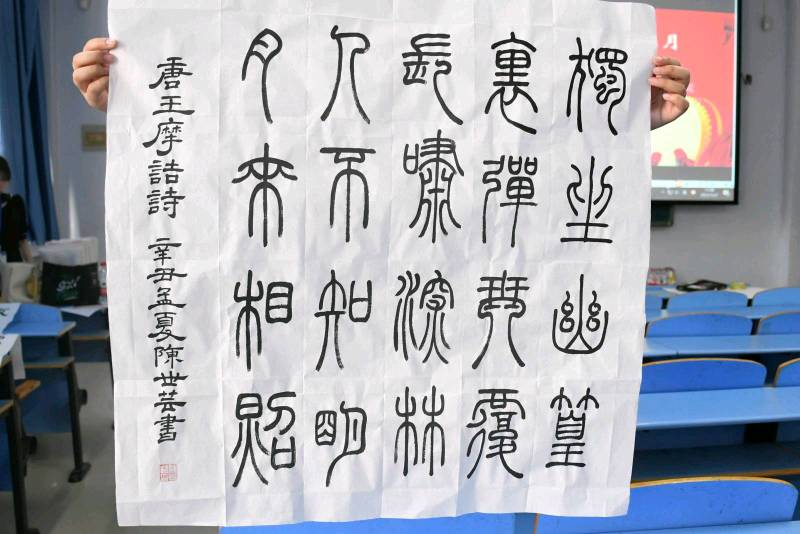 獨坐幽篁
裏彈琴覆
長嘯深林
人不知明
月來相照
唐王摩詰詩 辛丑孟夏陳世芸書
月